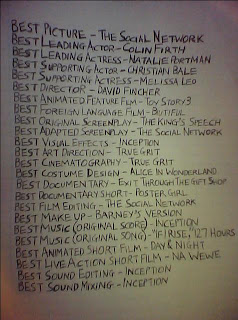 BEST PICTURE - THE SOCIAL NETWORK
BEST LEADING ACTOR - COLIN FIRTH
BEST LEADING ACTRESS - NATALIE PORTMAN
BEST SUPPORTING ACTOR - CHRISTIAN BALE
BEST SUPPORTING ACTRESS - MELISSA LEO
BEST DIRECTOR - DAVID FINCHER
BEST ANIMATED FEATURE FILM - TOY STORY 3
BEST FOREIGN LANGUAGE FILM - BIUTIFUL
BEST ORIGINAL SCREENPLAY - THE KING'S SPEECH
BEST ADAPTED SCREENPLAY - THE SOCIAL NETWORK
BEST VISUAL EFFECTS - INCEPTION
BEST ART DIRECTION - TRUE GRIT
BEST CINEMATOGRAPHY - TRUE GRIT
BEST COSTUME DESIGN - ALICE IN WONDERLAND
BEST DOCUMENTARY - EXIT THROUGH THE GIFT SHOP
BEST DOCUMENTARY SHORT - POSTER GIRL
BEST FILM EDITING - THE SOCIAL NETWORK
BEST MAKE UP - BARNEY'S VERSION
BEST MUSIC (ORIGINAL SCORE) - INCEPTION
BEST MUSIC (ORIGINAL SONG) - "IF I RISE," 127 HOURS
BEST ANIMATED SHORT FILM - DAY & NIGHT
BEST LIVE ACTION SHORT FILM - NA WEWE
BEST SOUND EDITING - INCEPTION
BEST SOUND MIXING - INCEPTION